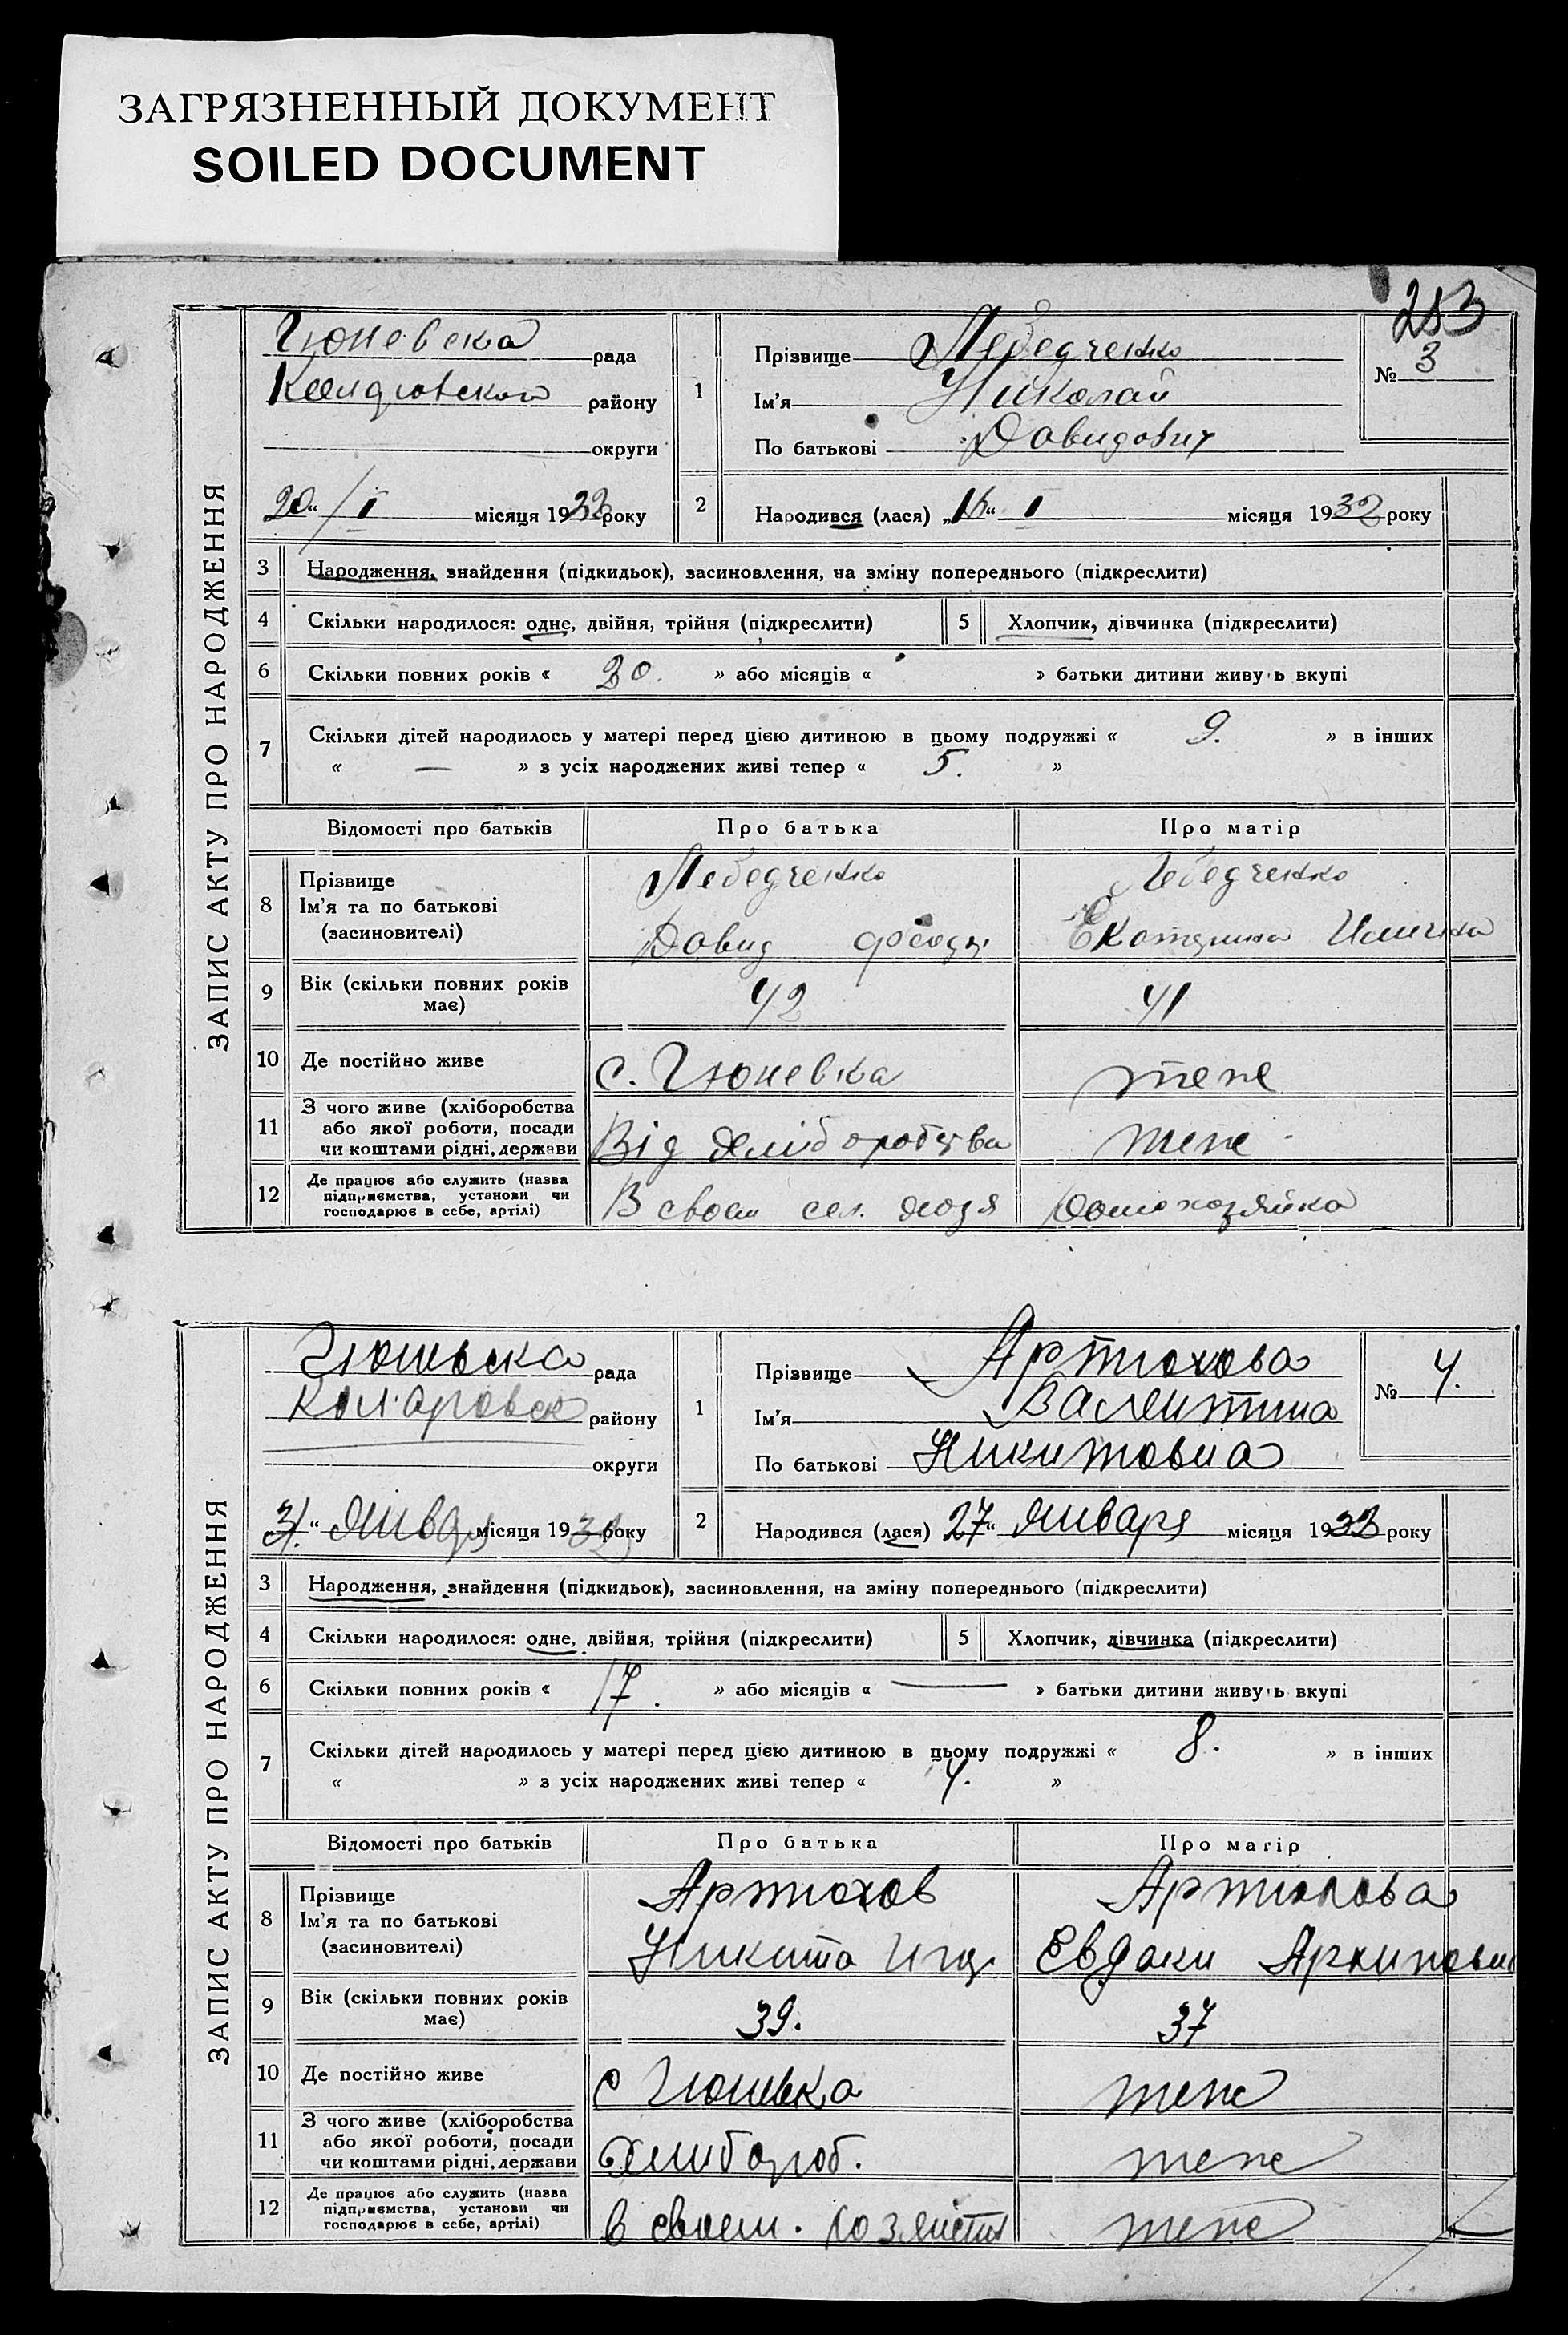 ЗАГРЯЗНЕННЫЙ ДОКУМЕНТ
SOILED DOCUMENT
253
ЗАПИС АКТУ ПРО НАРОДЖЕННЯ
Гюневска рада
району
округи
20 " / I місяця 1932 року
1
Прізвище Лебедченко
Ім'я Николай
По батькові Давидович
№ 3
2
Народився (лася) „16" I місяця 1932 року
3 Народження, знайдення (підкидьок), засиновлення, на зміну попереднього (підкреслити)
4 Скільки народилося: одне, двійня, трійня (підкреслити) 5 Хлопчик, дівчинка (підкреслити)
6 Скільки повних років « 20. » або місяців « » батьки дитини живуть вкупі
7 Скільки дітей народилось у матері перед цією дитиною в цьому подружжі « 9. » в інших
« — » з усіх народжених живі тепер « 5. »
Відомості про батьків Про батька Про матір
8 Прізвище Лебедченко Лебедченко
Ім'я та по батькові
(засновителі) Давид Екатерина
9 Вік (скільки повних років має) 42 41
10 Де постійно живе с. Гюневка теже
11 З чого живе (хліборобства
або якої роботи, посади
чи коштами рідні, держави Від хліборобства теже
12 Де працює або служить (назва
підприємства, установи чи
господарює в себе, артілі) В своем сел. хозя Домохозяйка
ЗАПИС АКТУ ПРО НАРОДЖЕННЯ
Гюневска рада
Коларовск району
округи
31. " января місяця 1932 року
1
Прізвище Артюхова
Ім'я Валентина
По батькові Никитовна
№ 4.
2
Народився (лася) 27" января місяця 1932 року
3 Народження, знайдення (підкидьок), засиновлення, на зміну попереднього (підкреслити)
4 Скільки народилося: одне, двійня, трійня (підкреслити) 5 Хлопчик, дівчинка (підкреслити)
6 Скільки повних років « 17. » або місяців « — » батьки дитини живуть вкупі
7 Скільки дітей народилось у матері перед цією дитиною в цьому подружжі « 8. » в інших
« » з усіх народжених живі тепер « 4. »
Відомості про батьків Про батька Про матір
8 Прізвище Артюхов Артюхова
Ім'я та по батькові
(засиновителі) Никита Евдоки Архиповна
9 Вік (скільки повних років має) 39. 37
10 Де постійно живе с Гюневка теже
11 З чого живе (хліборобства
або якої роботи, посади
чи коштами рідні, держави Хлибороб. теже
12 Де працює або служить (назва
підприємства, установи чи
господарює в себе, артілі) в своем. хозяйств теже